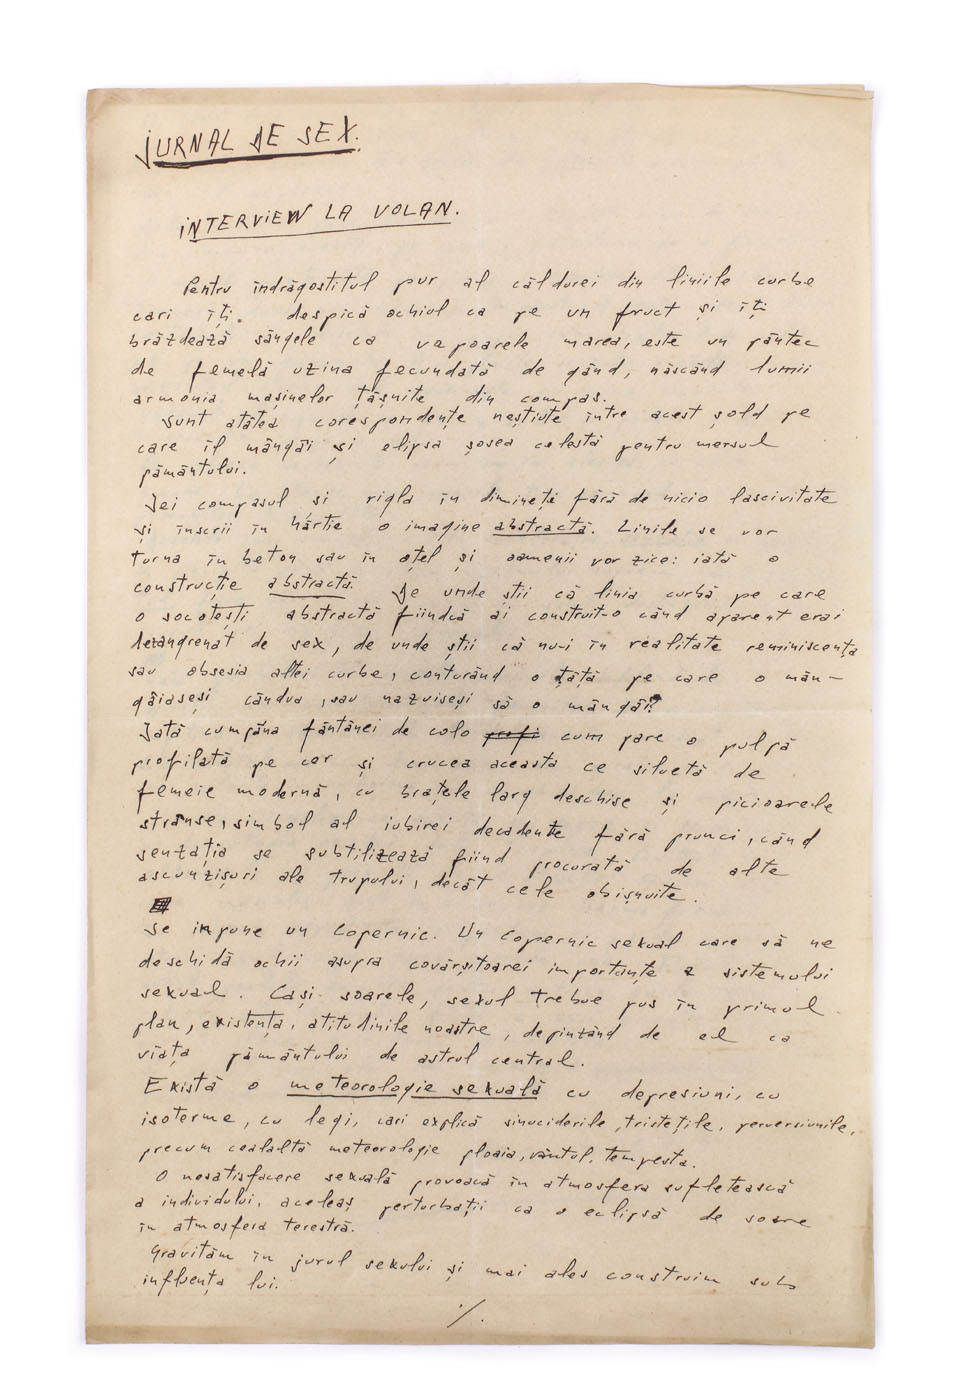 JURNAL DE SEX.
INTERVIEW LA VOLAN.
Pentru îndrăgostitul pur al căldurei din liniile curbe
cari îți despică ochiul ca pe un fruct și îți
brăzdează sângele ca vapoarele marea, este un pântec
de femelă uzina fecundată de gând, născând lumii
armonia mașinelor țâșnite din compas.
Sunt atâtea corespondențe neștiute între acest șold pe
care îl mângâi și elipsa șosea celestă pentru mersul
pământului.
Iei compasul și rigla în dimineți fără de nicio lascivitate
și înscrii în hârtie o imagine abstractă. Liniile se vor
turna în beton sau în oțel și oamenii vor zice: iată o
construcție abstractă. De unde știi că linia curbă pe care
o socotești abstractă fiindcă ai construit-o când aparent erai
dezangrenat de sex, de unde știi că nu-i în realitate reminiscența
sau obsesia altei curbe, conturând o țâță pe care o mân-
gâiaseși cândva, sau nazuiseși să o mângâi?
Iată cumpăna fântânei de colo cum pare o pulpă
profilată pe cer și crucea aceasta ce siluetă de
femeie modernă, cu brațele larg deschise și picioarele
strânse, simbol al iubirei decadente fără prunci, când
senzația se subtilizează fiind procurată de alte
ascunzișuri ale trupului, decât cele obișnuite.
Se impune un Copernic. Un Copernic sexual care să ne
deschidă ochii asupra covârșitoarei importanțe a sistemului
sexual. Cași soarele, sexul trebue pus în primul
plan, existența, atitudinile noastre, depinzând de el ca
viața pământului de astrul central.
Există o meteorologie sexuală cu depresiuni, cu
isoterme, cu legi, cari explică sinuciderile, tristețile, perversiunile,
precum cealaltă meteorologie ploaia, vântul, tempesta.
O nesatisfacere sexuală provoacă în atmosfera sufletească
a individului, aceleaș perturbații ca o eclipsă de soare
în atmosfera terestră.
Gravităm în jurul sexului și mai ales construim sub
influența lui.
./.